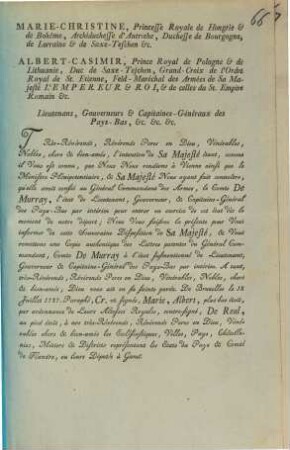 MARIE-CHRISTINE, Princesse Royale de Hongrie &
de Bohême, Archiduchesse d'Autriche, Duchesse de Bourgogne,
de Lorraine & de Saxe-Teschen &c.
ALBERT-CASIMIR, Prince Royal de Pologne & de
Lithuanie, Duc de Saxe-Teschen, Grand-Croix de l'Ordre
Royal de St. Etienne, Feld-Maréchal des Armées de Sa Ma-
jesté L'EMPEREUR & ROI, & de celles du St. Empire
Romain &c.
Lieutenans, Gouverneurs & Capitaines-Généraux des
Pays-Bas, &c. &c. &c.
Très-Révérends, Révérends Peres en Dieu, Vénérables,
Nobles, chers & bien-amés, l'intention de Sa Majesté étant, comme
il Vous est connu, que Nous Nous rendions à Vienne ainsi que le
Ministre Plénipotentiaire, & Sa Majesté Nous ayant fait connoître,
qu'elle avoit confié au Général Commandant des Armes, le Comte De
Murray, l'état de Lieutenant, Gouverneur, & Capitaine-Général
des Pays-Bas par interim pour entrer en exercice de cet état dès le
moment de notre départ; Nous Vous faisons la présente pour Vous
informer de cette Souveraine Disposition de Sa Majesté, & Vous
remettons une Copie authentique des Lettres patentes du Général Com-
mandant, Comte De Murray à l'état susmentionné de Lieutenant,
Gouverneur & Capitaine-Général des Pays-Bas par interim. A tant,
très-Révérends, Révérends Peres en Dieu, Vénérables, Nobles, chers
& bien-amés, Dieu vous ait en sa sainte garde. De Bruxelles le 18
Juillet 1787. Paraphé, Cr. vt. signés, Marie, Albert, plus bas étoit,
par ordonnance de Leurs Altesses Royales, contre-signé, De Reul,
au pied étoit, à nos très-Révérends, Révérends Peres en Dieu, Véné-
rables chers & bien-amés les Ecclésiastiques, Villes, Pays, Châtelle-
nies, Métiers & Districts représentans les Etats du Pays & Comté
de Flandre, ou leurs Députés à Gand.